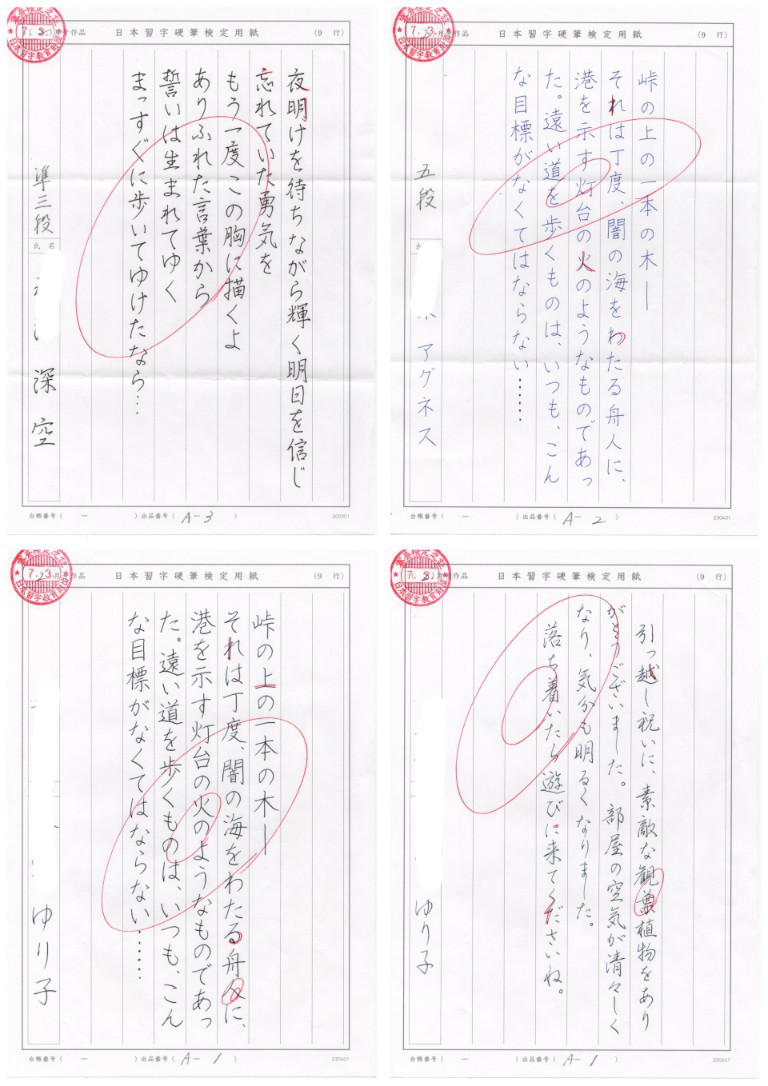 日本習字硬筆検定用紙
(9 行)
夜明けを待ちながら輝く明日を信じ
忘れていた勇気を
もう一度この胸に描くよ
ありふれた言葉から
誓いは生まれてゆく
まっすぐに歩いてゆけたなら…
準三段
氏名
深空
台帳番号( ー )出品番号( A-3 )
200301
日本習字硬筆検定用紙
(9 行)
峠の上の一本の木―
それは丁度、闇の海をわたる舟人に、
港を示す灯台の火のようなものであっ
た。遠い道を歩くものは、いつも、こん
な目標がなくてはならない……
五段
アグネス
台帳番号( ー )出品番号( A-2 )
230401
7.3
作品
日本習字硬筆検定用紙
(9 行)
峠の上の一本の木―
それは丁度、闇の海をわたる舟人に、
港を示す灯台の火のようなものであっ
た。遠い道を歩くものは、いつも、こん
な目標がなくてはならない……
ゆり子
台帳番号( ー )出品番号( A-1 )
230401
作品
日本習字硬筆検定用紙
(9 行)
引っ越し祝いに、素敵な観葉植物をあり
がとうございました。部屋の空気が清々しく
なり、気分も明るくなりました。
落ち着いたら遊びに来てくださいね。
ゆり子
台帳番号( ー )出品番号( A-1 )
230401